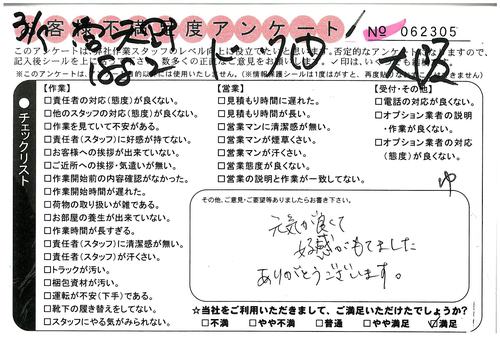 3/1
お客様不満足度アンケート
No 062305
大阪
このアンケートは、弊社作業スタッフのレベル向上に役立てたいと思います。否定的なアンケートになりますので、
※このアンケートは、
(※情報保護シールは1度はがすと、再度貼り
チェックリスト
【作業】
□責任者の対応(態度)が良くない。
□他のスタッフの対応(態度)が良くない。
□作業を見ていて不安がある。
□責任者(スタッフ)に好感が持てない。
□お客様への挨拶が出来ていない。
□ご近所への挨拶・気遣いが無い。
□作業開始前の内容確認がなかった。
□作業開始時間が遅れた。
□荷物の取り扱いが雑である。
□お部屋の養生が出来ていない。
□作業時間が長すぎる。
□責任者(スタッフ)に清潔感が無い。
□責任者(スタッフ)が汗くさい。
□トラックが汚い。
□梱包資材が汚い。
□運転が不安(下手)である。
□靴下の履き替えをしてない。
□スタッフにやる気がみられない。
【営業】
□見積もり時間に遅れた。
□見積もり時間が長い。
□営業マンに清潔感が無い。
□営業マンが煙草くさい。
□営業マンが汗くさい。
□営業態度が良くない。
□営業の説明と作業が一致してない。
【受付・その他】
□電話の対応が良くない。
□オプション業者の説明
・作業が良くない。
□オプション業者の対応
(態度)が良くない。
その他、ご意見・ご要望等ありましたらお書き下さい。
元気が良くて
好感がもてました
ありがとうございます。
☆当社をご利用いただきまして、ご満足いただけたでしょうか?
□不満 □やや不満 □普通 □やや満足 ☑満足